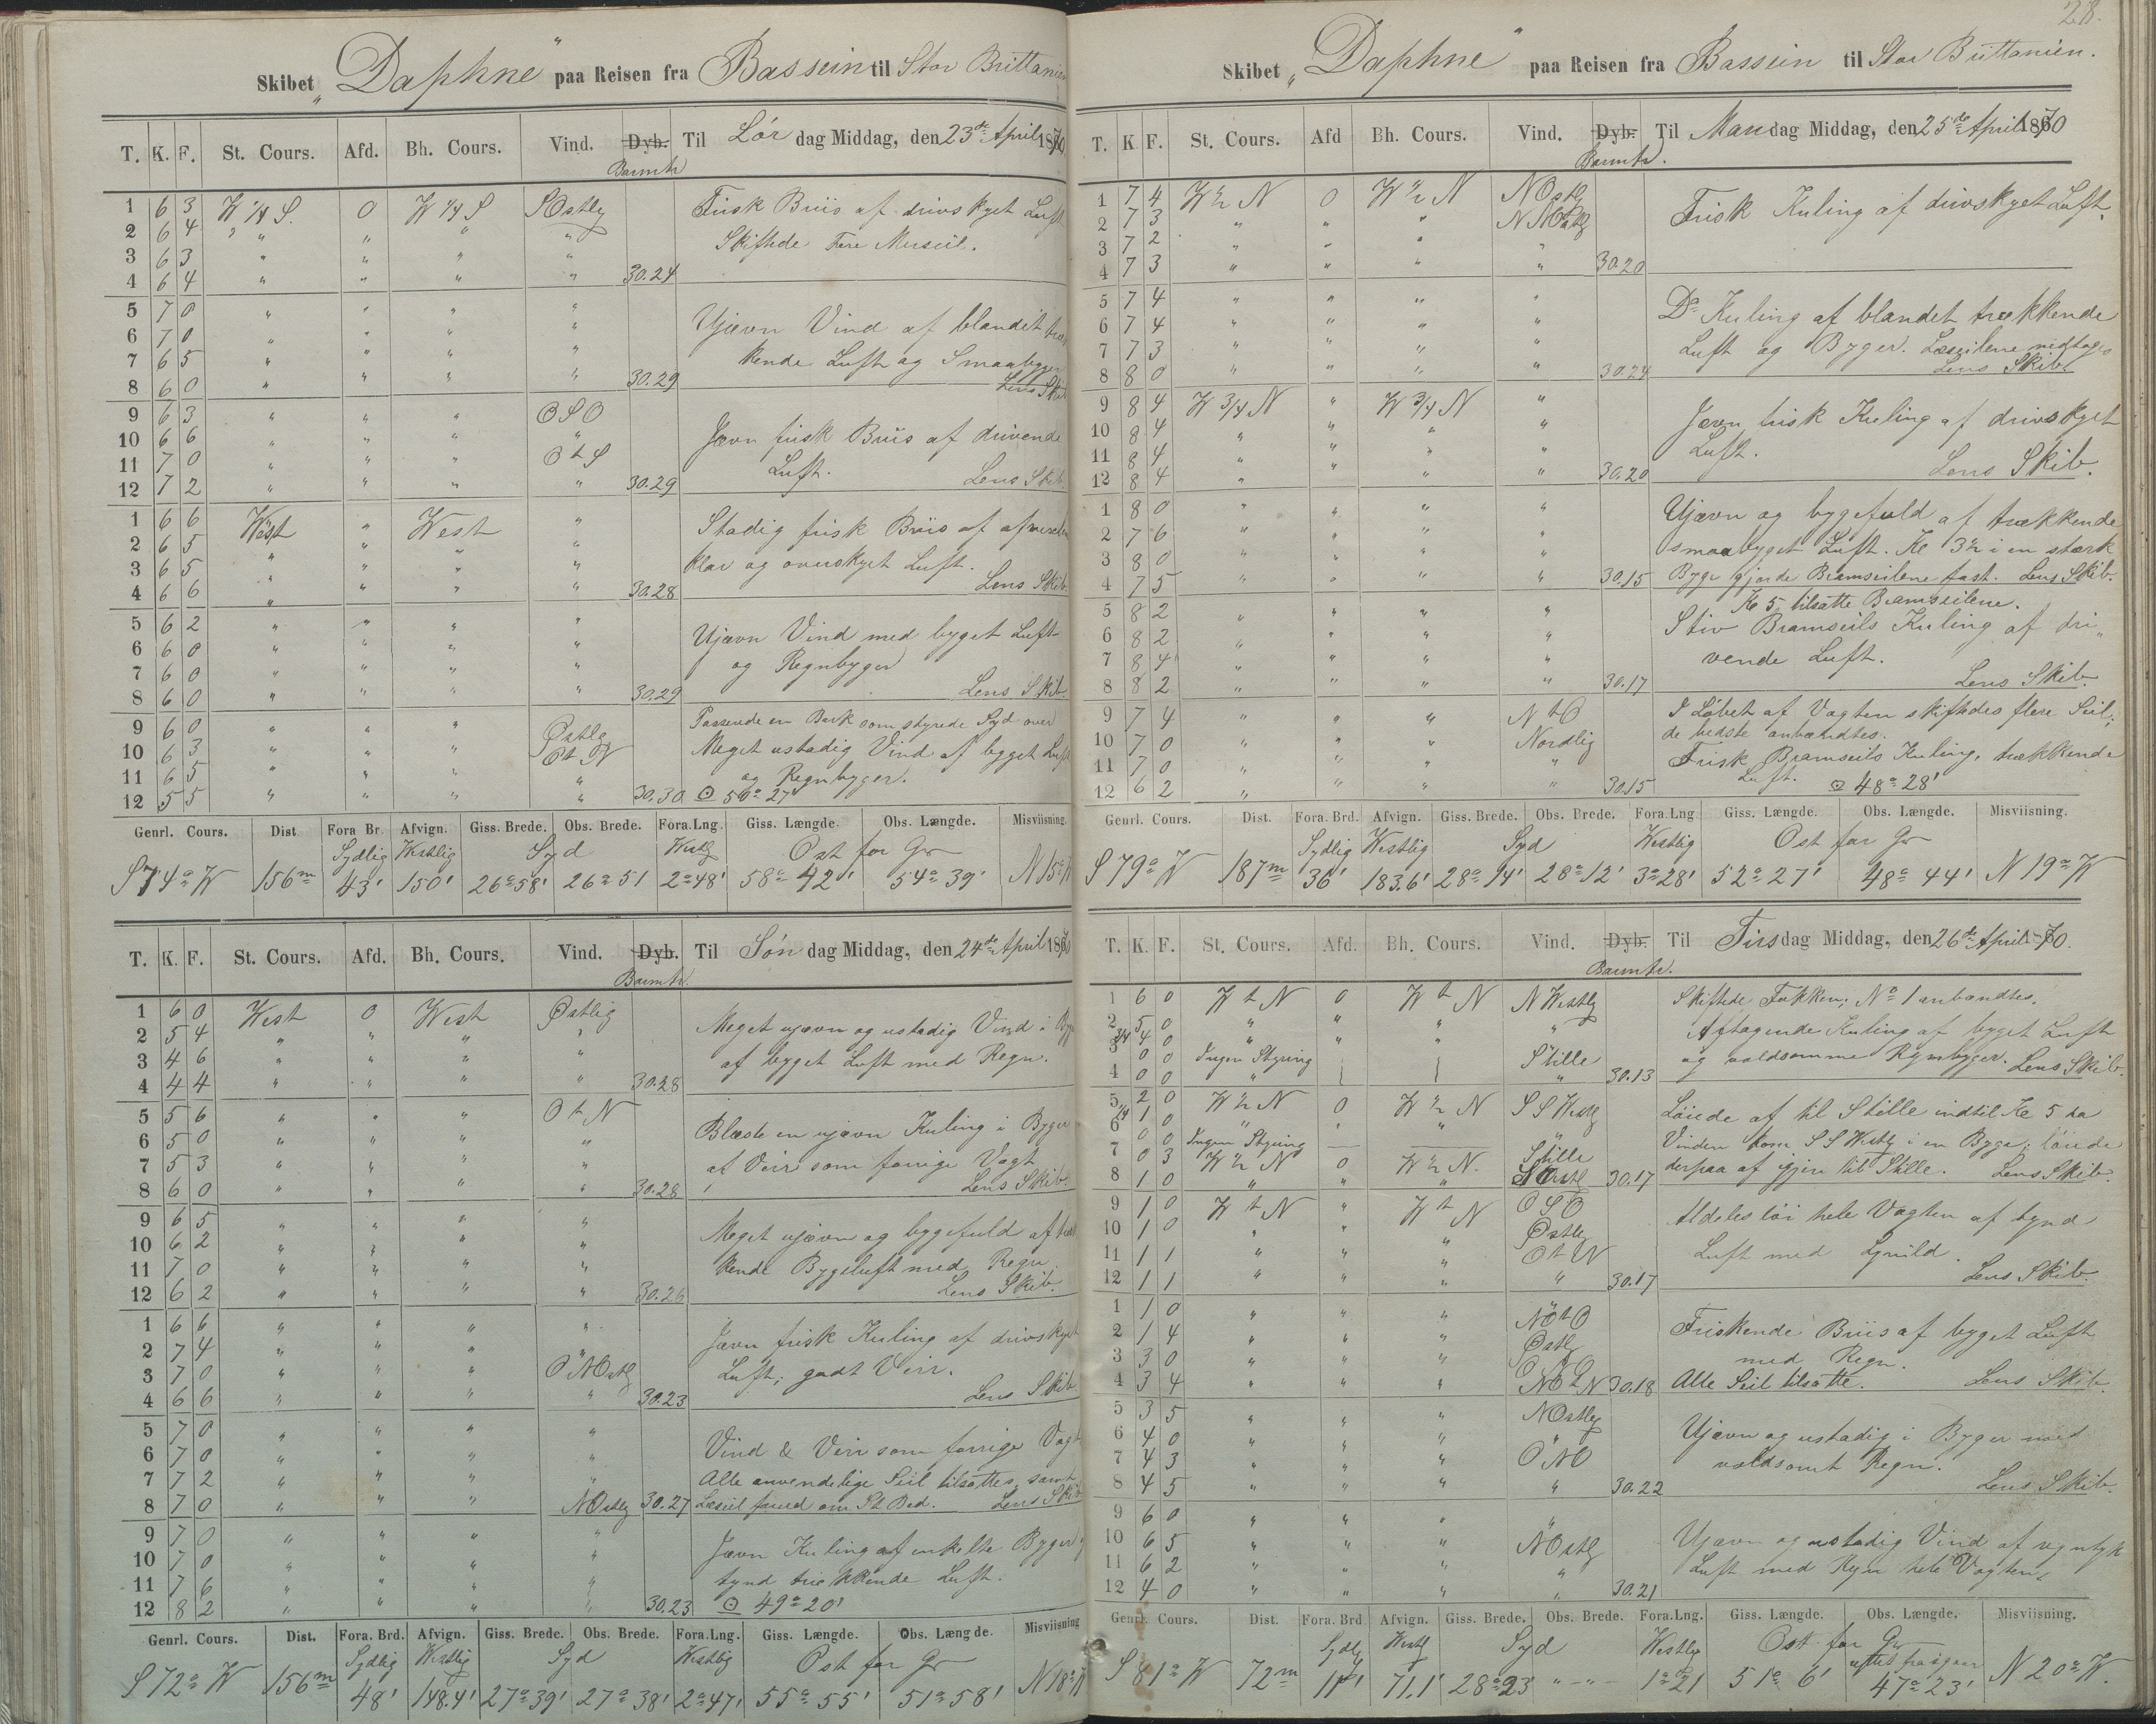 Skibet „Daphne“ paa Reisen fra Bassein til Stor Brittanien
T. K. F. St. Cours. Afd. Bh. Cours. Vind. Dyb. Til Lör dag Middag, den 23de April 1870
Barmtr
1 6 3 W 1/4 S. 0 W 1/4 S SOstlg Frisk Briis af drivskyet Luft
2 6 4 " " " " Skiftede Fore Merseil.
3 6 3 " " " "
4 6 4 " " " " 30.24
5 7 0 " " " "
6 7 0 " " " " Ujævn Vind af blandet træk
7 6 5 " " " " kende Luft og Smaabyger
8 6 0 " " " " 30.29 Lens Skib
9 6 3 " " " OSO
10 6 6 " " " " Jævn frisk Briis af drivende
11 7 0 " " " O t S Luft.
12 7 2 " " " " 30.29 Lens Skib
1 6 6 West " West " Stadig frisk Briis af afvexlen
2 6 5 " " " " klar og overskyet Luft.
3 6 5 " " " "
4 6 6 " " " " 30.28 Lens Skib.
5 6 2 " " " "
6 6 0 " " " " Ujævn Vind med byget Luft
7 6 0 " " " " og Regnbyger
8 6 0 " " " " 30.29 Lens Skib
9 6 0 " " " Østlg Passerede en Bark som styrede Syd over
10 6 3 " " " Ot N Meget ustadig Vind af bygget Luft
11 6 5 " " " " og Regnbyger.
12 5 5 " " " " 30.30 ⊙ 50° 27'
Genrl. Cours. Dist Fora Br. Afvign. Giss. Brede. Obs. Brede. Fora.Lng. Giss. Længde. Obs. Længde. Misviisning.
Sydlig Westlig Syd Westlg Ost for Gr
S 74° W 156m 43' 150' 26° 58' 26° 51 2° 48' 58° 42' 54° 39' N 15° W
T. K. F. St. Cours. Afd. Bh. Cours. Vind. Dyb. Til Sön dag Middag, den 24de April 1870
Barmtr.
1 6 0 West 0 West Østlig
2 5 4 " " " " Meget ujævn og ustadig Vind i Byger
3 4 6 " " " " af byget Luft med Regn.
4 4 4 " " " " 30.28
5 5 6 " " " O t N
6 5 0 " " " " Blæste en ujævn Kuling i Byger
7 5 3 " " " " af Veir som forrige Vagt
8 6 0 " " " " 30.28 Lens Skib.
9 6 5 " " " " Meget ujævn og bygefuld af træk
10 6 2 " " " "
11 7 0 " " " " kende Bygeluft med Regn.
12 6 2 " " " " 30.26 Lens Skib.
1 6 6 " " " "
2 7 4 " " " " Jævn frisk Kuling af drivskyet
3 7 0 " " " O NOstlg Luft; godt Veir.
4 6 6 " " " " 30.23 Lens Skib
5 7 0 " " " "
6 7 0 " " " " Vind & Veir som forrige Vagt
7 7 2 " " " " Alle anvendelige Seil tilsattes, samt
8 7 0 " " " NOstlg 30.27 Læseil forud om St Bod. Lens Skib
9 7 0 " " " "
10 7 0 " " " " Jævn Kuling af enkelte Byger
11 7 6 " " " " tynd trækkende Luft.
12 8 2 " " " " 30.23 ⊙ 49° 20'
Genrl. Cours. Dist. Fora. Brd. Afvign. Giss. Brede. Obs. Brede. Fora.Lng. Giss. Længde. Obs. Længde. Misviisning
Sydlig Westlig Syd Westlig Ost for Gr
S 72° W 156m 48' 148.4' 27° 39' 27° 38' 2° 47' 55° 55' 51° 58' N 18° W
28.
Skibet „Daphne“ paa Reisen fra Bassein til Stor Brittanien.
T. K F. St. Cours. Afd Bh. Cours. Vind. Dyb. Til Man dag Middag, den 25de April 1870
Barmtr.
1 7 4 W ½ N 0 W ½ N NOstlg
2 7 3 " " " NNOstlg Frisk Kuling af drivskyet Luft.
3 7 2 " " " "
4 7 3 " " " " 30.20
5 7 4 " " " " Do Kuling af blandet trækkende
6 7 4 " " " "
7 7 3 " " " " Luft og Byger. Læseilene nedtoges
8 8 0 " " " " 30.24 Lens Skib.
9 8 4 W 3/4 N " W 3/4 N "
10 8 4 " " " " Jævn frisk Kuling af drivskyet
11 8 4 " " " " Luft.
12 8 4 " " " " 30.20 Lens Skib.
1 8 0 " " " " Ujævn og bygefuld af trækkende
2 7 6 " " " "
3 8 0 " " " " smaabyget Luft. Kl 3½ i en stærk
4 7 5 " " " " 30.15 Byge gjorde Bramseilene fast. Lens Skib.
5 8 2 " " " " Kl 5 tilsatte Bramseilene.
6 8 2 " " " " Stiv Bramseils Kuling af dri„
7 8 4 " " " " vende Luft.
8 8 2 " " " " 30.17 Lens Skib.
9 7 4 " " " N t O I Löbet af Vagten skiftedes flere Seil;
10 7 0 " " " Nordlig de bedste anvendtes.
11 7 0 " " " " Frisk Bramseils Kuling, trækkende
12 6 2 " " " " 30.15 Luft. ⊙ 48° 28'
Genrl. Cours. Dist. Fora. Brd. Afvign. Giss. Brede. Obs. Brede. Fora.Lng Giss. Længde. Obs. Længde. Misviisning.
Sydlig Westlig Syd Westlig Ost for Gr
S 79° W 187m 36' 183.6' 28° 14' 28° 12' 3° 28' 52° 27' 48° 44' N 19° W
T. K. F. St. Cours. Afd. Bh. Cours. Vind. Dyb. Til Tirs dag Middag, den 26de April 70.
Barmtr.
1 6 0 W t N 0 W t N N Westlg Skiftede Fokken; No 1 anvendtes.
2 5 0 " " " " Aftagende Kuling af byget Luft
3/4 4 0 " " "
3 0 0 Ingen Styring Stille og voldsomme Regnbyger. Lens Skib.
4 0 0 " " 30.13
5 2 0 W ½ N 0 W ½ N S S Westlg Löiede af til Stille indtil Kl 5 da
1/4 1 0
6 0 0 Ingen Styring — — " Vinden kom S S Westlg i en Byge; löiede
7 0 3 W ½ N 0 W ½ N. Stille derpaa af igjen til Stille. Lens Skib.
8 1 0 " " " SOstlg 30.17
9 1 0 W t N " W t N OSO Aldeles löi hele Vagten af tynd
10 1 0 " " " Østlg
11 1 1 " " " O t N Luft med Lynild.
12 1 1 " " " " 30.17 Lens Skib.
1 1 0 " " " NO t O
2 1 4 " " " Østlg Friskende Briis af byget Luft
3 3 0 " " " ONO med Regn.
4 3 4 " " " NO t N 30.18 Alle Seil tilsatte. Lens Skib.
5 3 5 " " " NOstlg
6 4 0 " " " " Ujævn og ustadig i Byger med
7 4 3 " " " ONO voldsomt Regn.
8 4 5 " " " " 30.22 Lens Skib.
9 6 0 " " " "
10 6 5 " " " NOstlg Ujævn og ustadig Vind af regntyk
11 6 2 " " " " Luft med Regn hele Vagten.
12 4 0 " " " " 30.21
Genrl. Cours. Dist. Fora. Brd Afvign. Giss. Brede. Obs. Brede. Fora.Lng. Giss. Længde. Obs. Længde. Misviisning.
Sydlg Westlg Syd Westlg Ost for Gr
S 81° W 72m 11' 71.1' 28° 23 " — " — 1° 21 51° 6' 47° 23' N 20° W.